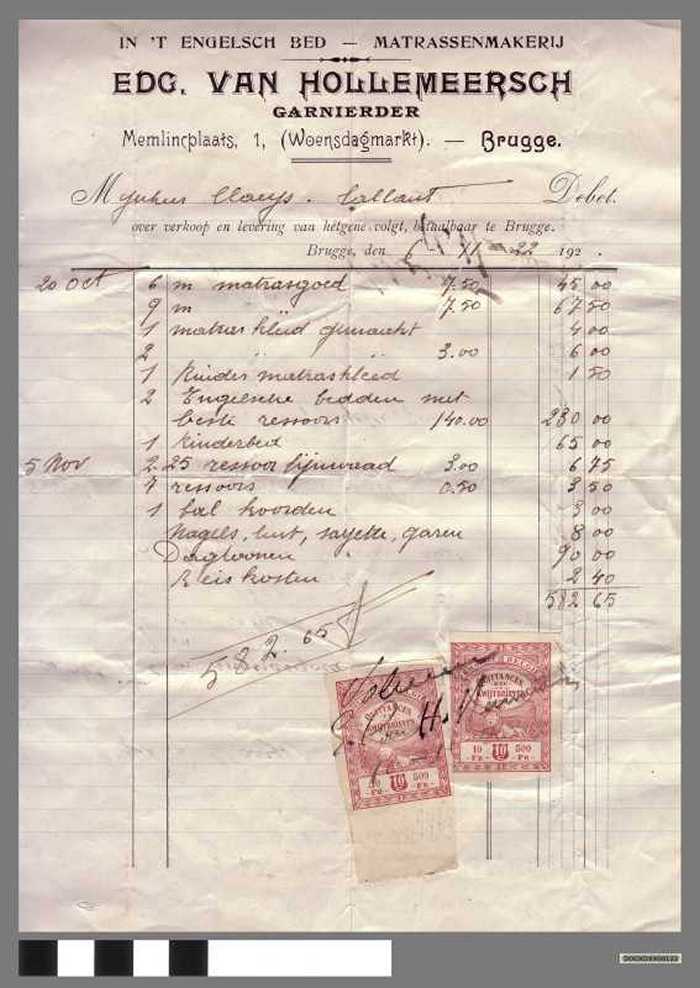 IN 'T ENGELSCH BED — MATRASSENMAKERIJ
EDG. VAN HOLLEMEERSCH
GARNIERDER
Memlincplaats, 1, (Woensdagmarkt). — Brugge.
Mynheer Claeys. Callant Debet.
over verkoop en levering van hetgene volgt, betaalbaar te Brugge.
Brugge, den 6 - 11 - 22 192 .
20 Oct 6 m matrasgoed 7.50 45 00
9 m 7.50 67 50
1 matras kleed gemaakt 4 00
2 " " 3.00 6 00
1 Kinder matraskleed 1 50
2 Engelsche bedden met
beste ressoors 140.00 280 00
1 Kinderbed 65 00
5 Nov 2.25 ressoor lijnwaad 3.00 6 75
7 ressoors 0.50 3 50
1 bal koorden 3 00
Nagels, lint, sayette, garen 8 00
Dagloonen 90 00
Reiskosten 2 40
582 65
582.65
Voldaan
QUITTANCES
KWIJTSCHRIFTEN
10 500
Fr Fr
QUITTANCES
KWIJTSCHRIFTEN
10 500
Fr Fr